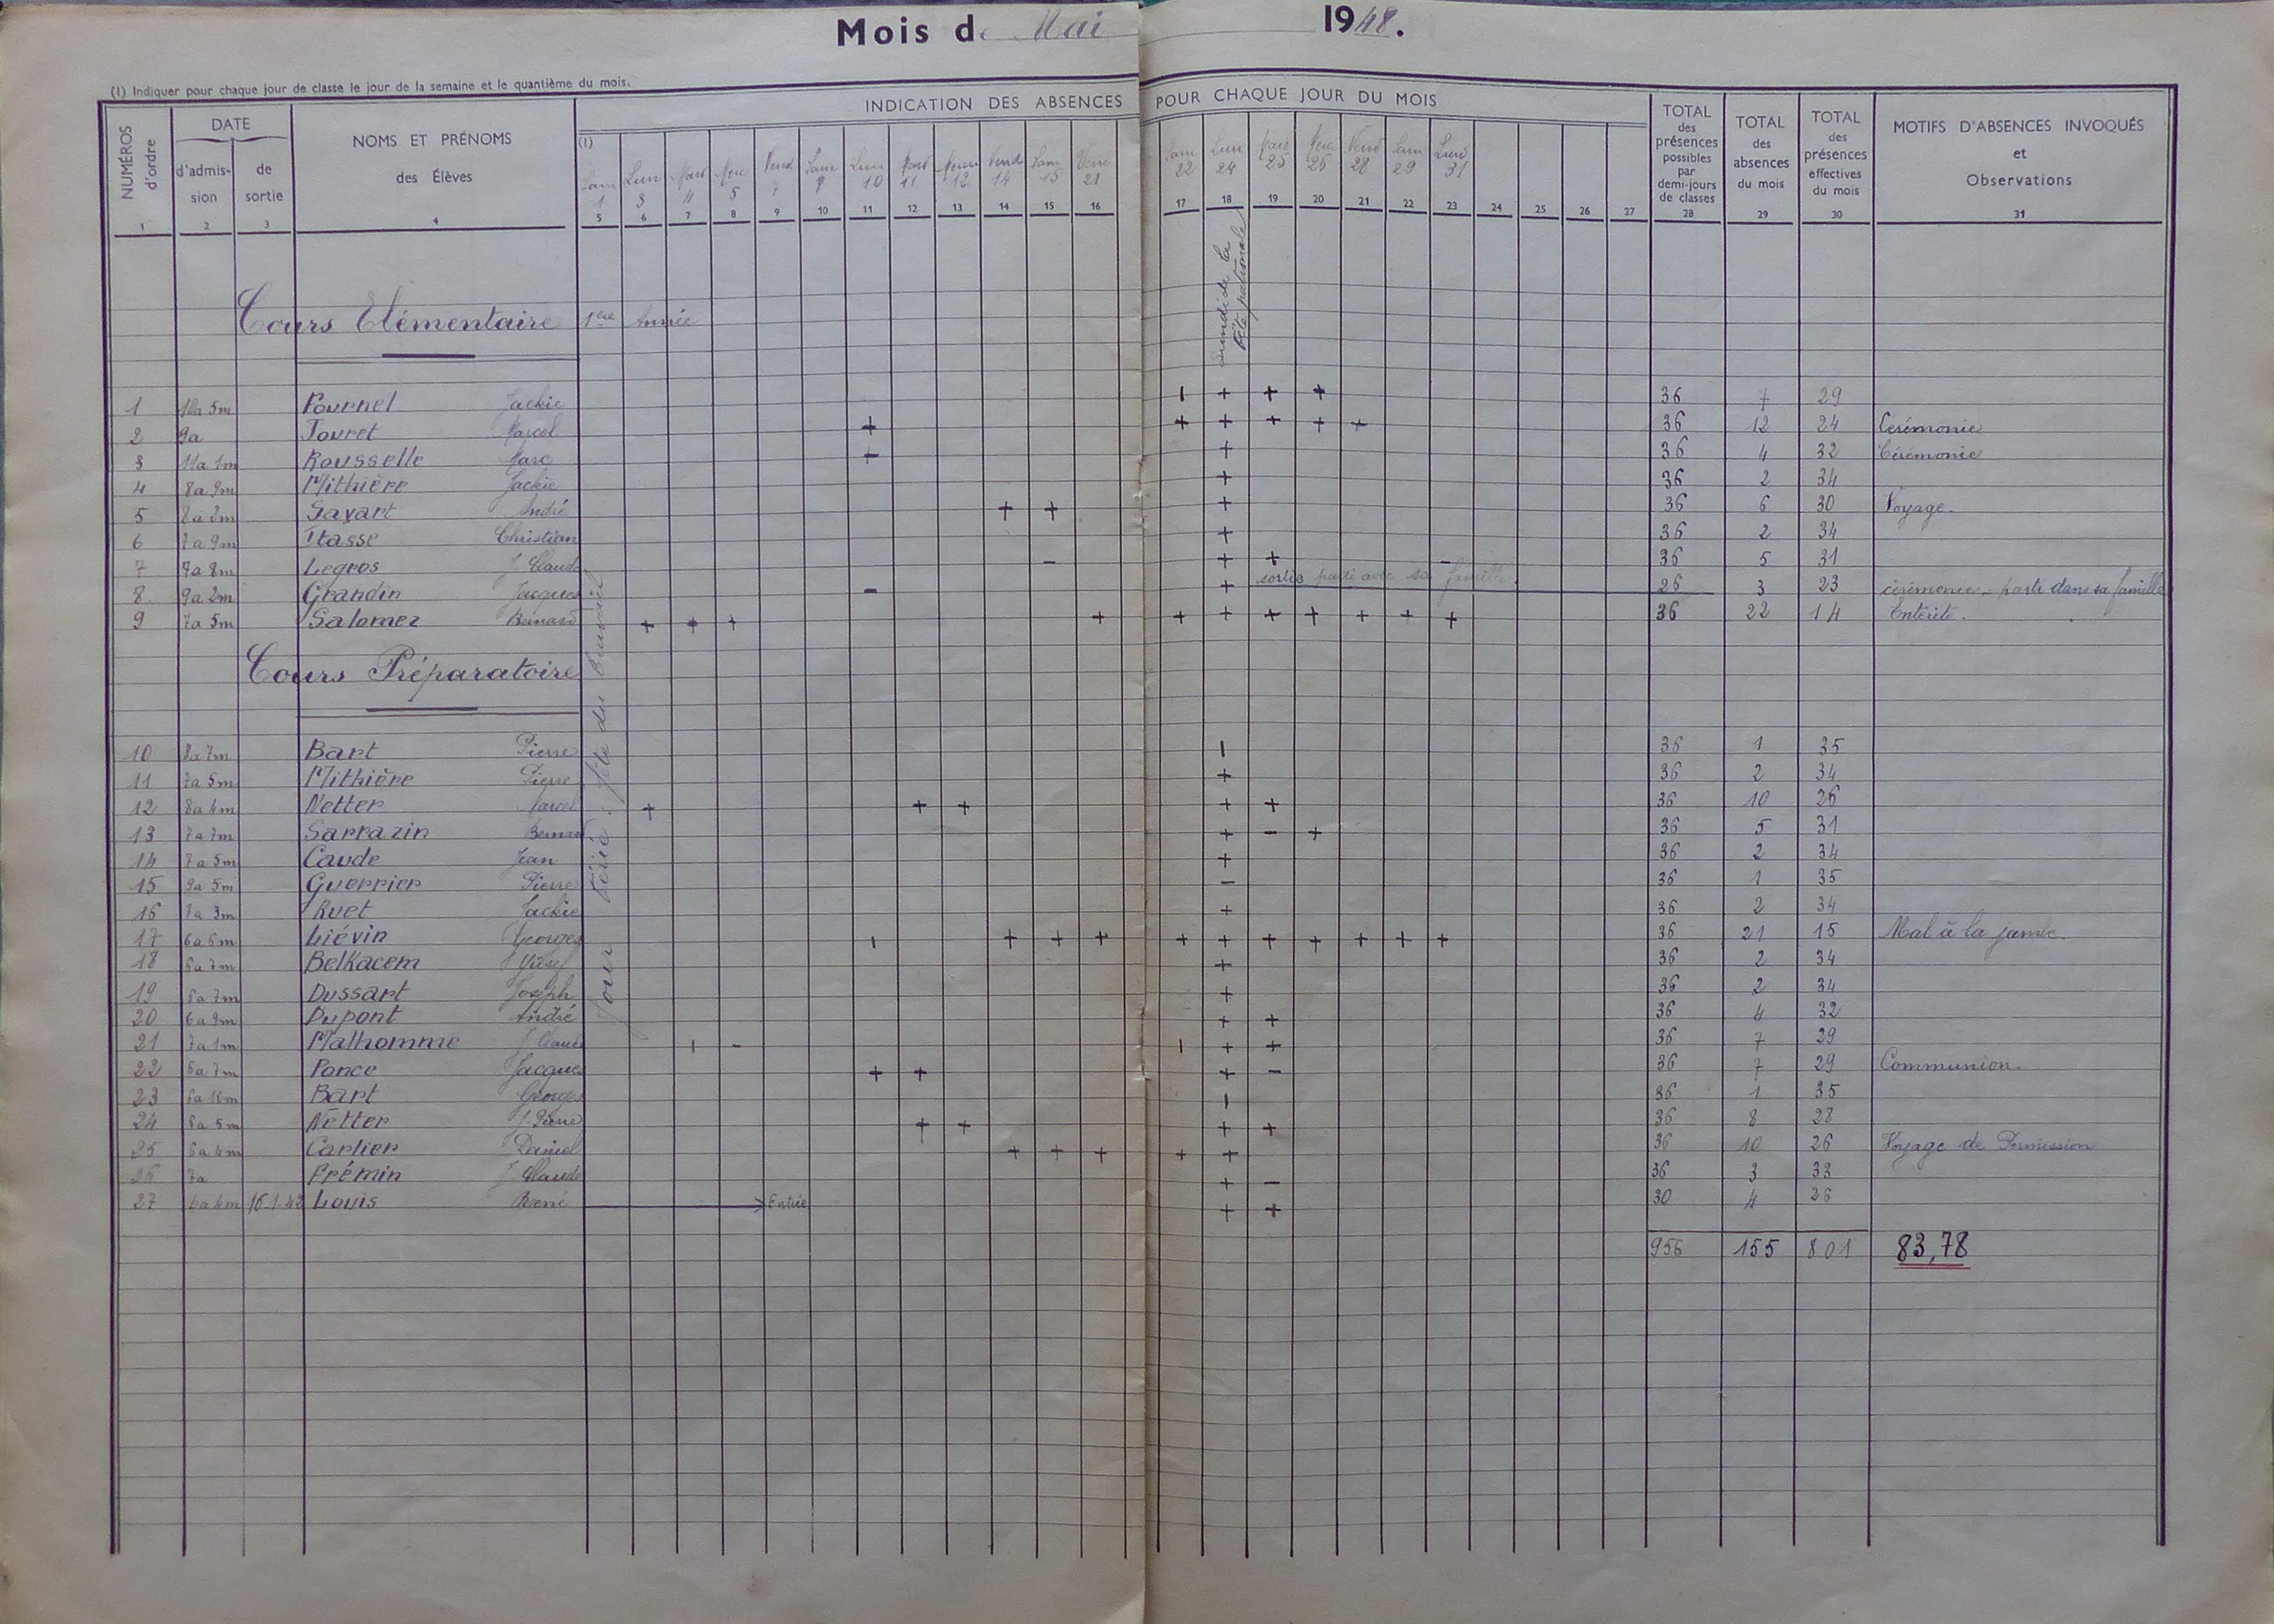 Mois de Mai 1948.
(1) Indiquer pour chaque jour de classe le jour de la semaine et le quantième du mois.
NUMÉROS d'ordre
DATE
d'admission
de sortie
NOMS ET PRÉNOMS des Élèves
INDICATION DES ABSENCES POUR CHAQUE JOUR DU MOIS
TOTAL des présences possibles par demi-jours de classes
TOTAL des absences du mois
TOTAL des présences effectives du mois
MOTIFS D'ABSENCES INVOQUÉS et Observations
(1) Sam 1 Lun 3 Mar 4 Mer 5 Vend 7 Sam 8 Lun 10 Mar 11 Mer 12 Vend 14 Sam 15 Ven 21 Sam 22 Lun 24 Mar 25 Mer 26 Vend 28 Sam 29 Lund 31
1 2 3 4 5 6 7 8 9 10 11 12 13 14 15 16 17 18 19 20 21 22 23 24 25 26 27 28 29 30 31
Lundi de la fête patronale
Cours Elémentaire 1ère Année
1 Fournel Jackie | + + + 36 7 29
2 9a Touret Marcel + + + + + + 36 12 24 Cérémonie
3 11a 1m Rousselle Marc + + 36 4 32 Cérémonie
4 8a 9m Mithière Jackie + 36 2 34
5 8a 2m Savart André + + + 36 6 30 Voyage.
6 7a 9m Itasse Christian + 36 2 34
7 7a 8m Legros J. Claude - + + - 36 5 31
8 9a 2m Grandin Jacques - + sortie parti avec sa famille. 26 3 23 cérémonie - parti dans sa famille
9 7a 5m Salomez Bernard + + + + + + + + + + + 36 22 14 Entérite.
Jour férié : fête du travail
Cours Préparatoire
10 8a 7m Bart Pierre | 36 1 35
11 7a 5m Mithière Pierre + 36 2 34
12 8a 4m Netter Marcel + + + + + 36 10 26
13 7a 7m Sarrazin Bernard + - + 36 5 31
14 7a 5m Caude Jean + 36 2 34
15 9a 5m Guerrier Pierre - 36 1 35
16 7a 3m Ruet Jackie + 36 2 34
17 6a 6m Liévin Georges | + + + + + + + + + + 36 21 15 Mal à la jambe.
18 6a 7m Belkacem + 36 2 34
19 6a 7m Dussart Joseph + 36 2 34
20 6a 9m Dupont André + + 36 4 32
21 7a 1m Malhomme J. Claude | - | + + 36 7 29
22 6a 7m Ponce Jacques + + + - 36 7 29 Communion.
23 6a 10m Bart Georges | 36 1 35
24 6a 5m Netter J. Pierre + + + + 36 8 28
25 6a 4m Carlier Daniel + + + + + 36 10 26 Voyage de Permission
26 7a Frémin J. Claude + - 36 3 33
27 6a 4m 16-1-42 Louis René Entrée + + 30 4 26
956 155 801 83,78